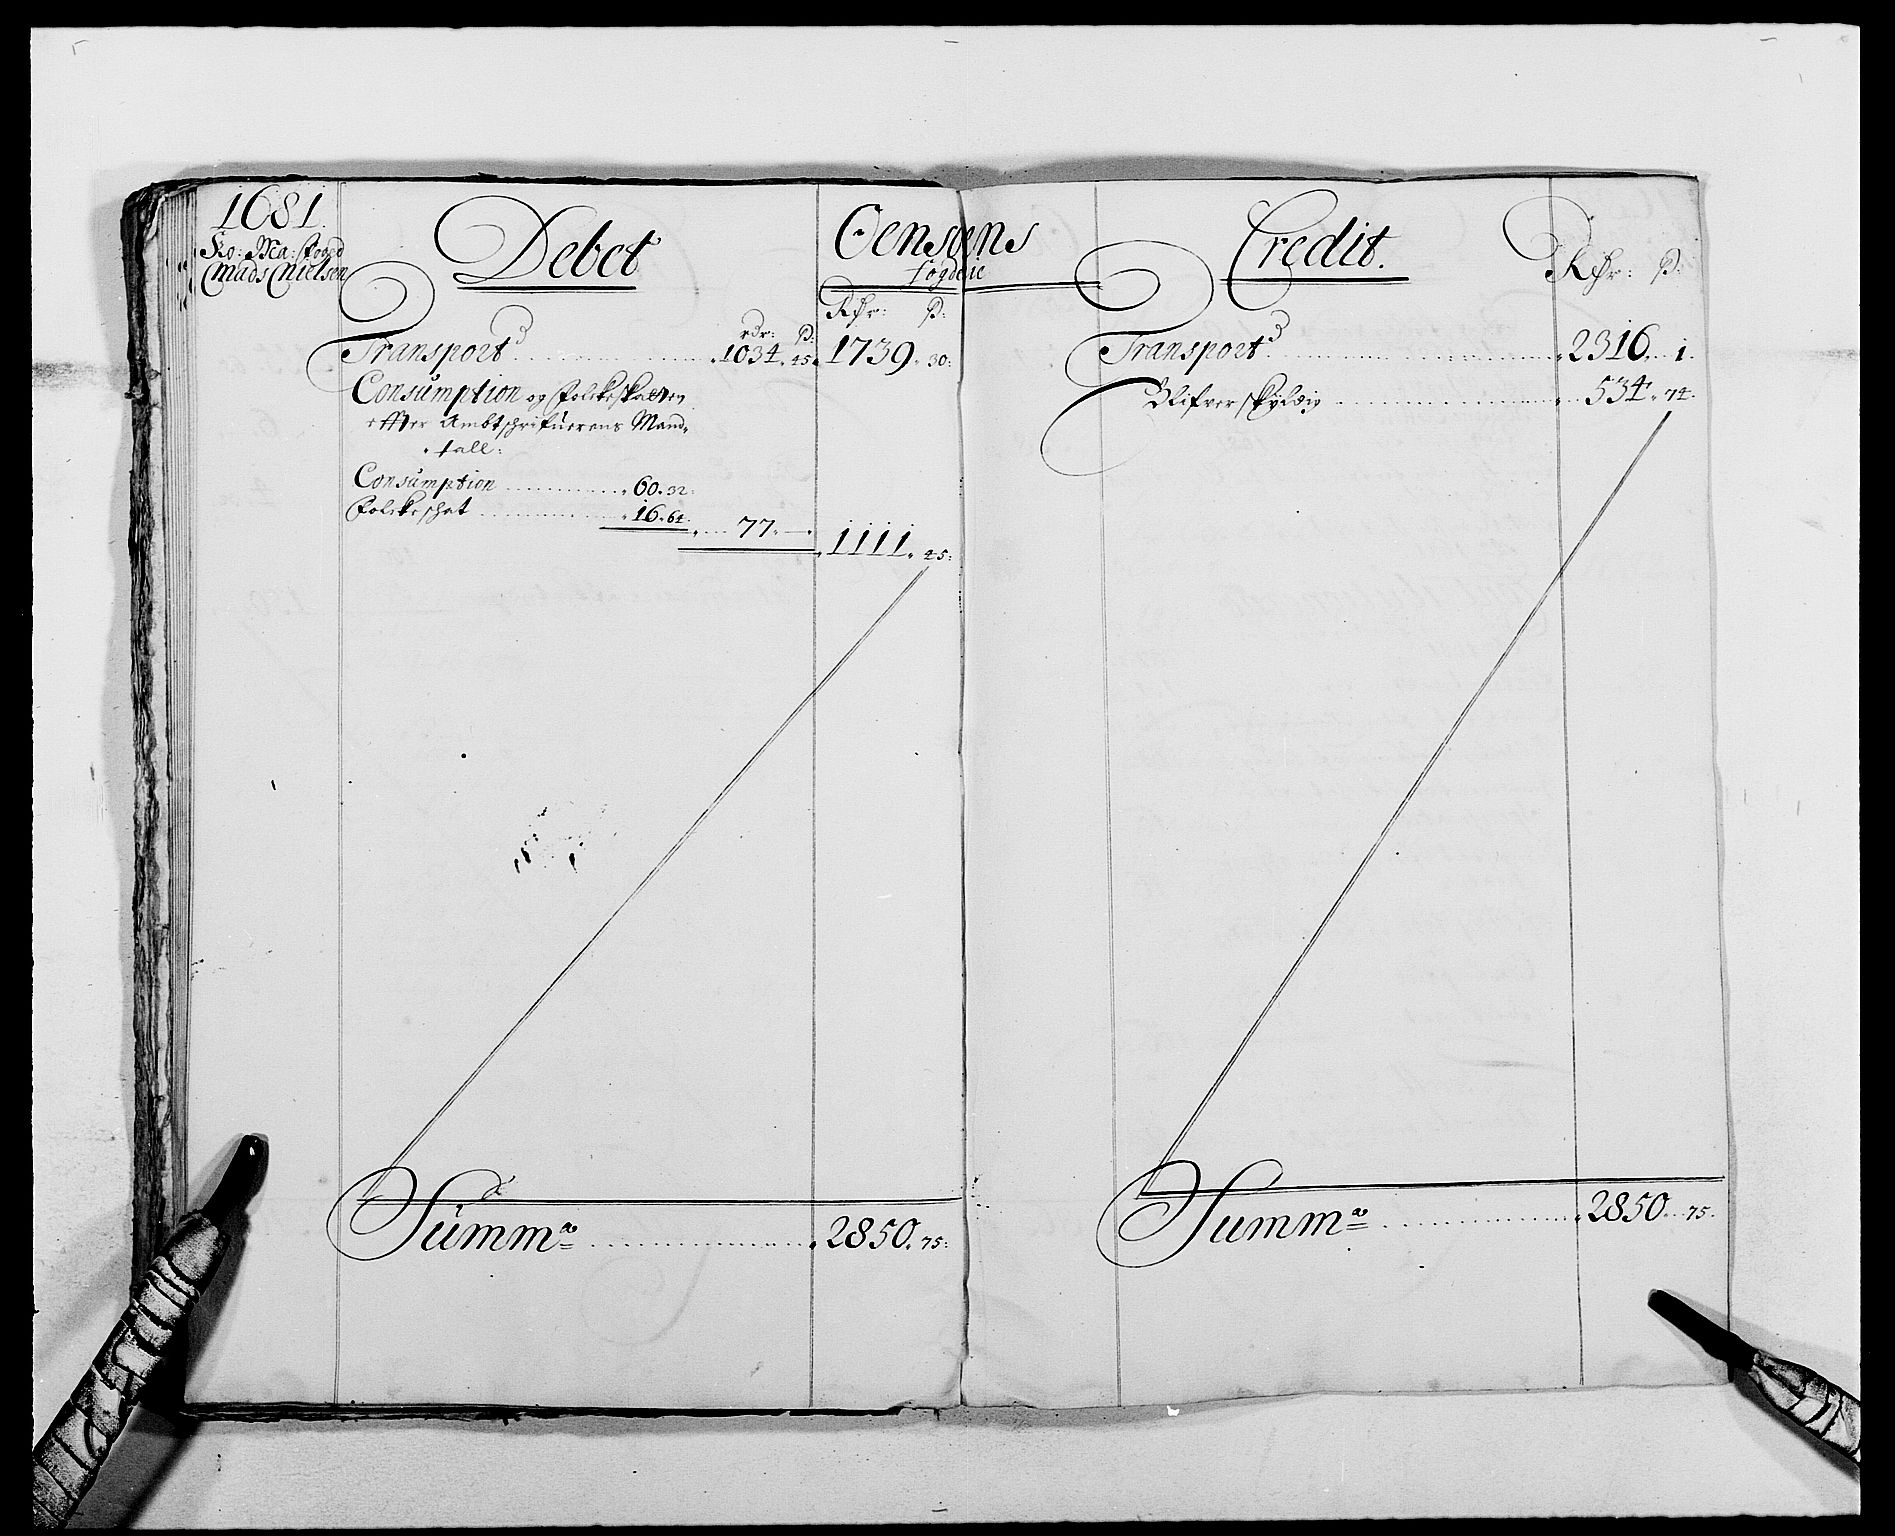 1681.
Ko: Ma: foged
Mads Nielsen
Debet
Oensøens
fogderie
rdr: ß:
Rdr: ß:
Transport 1034. 45. 1739. 30:
Consumption og Folckeskatten
effter Ambtschrifuerens Mand-
tall:
Consumption 60. 32:
Folckeschat 16. 64.
77. —
1111. 45:
Summa 2850. 75:
Credit.
Rdr: ß:
Transport 2316. 1.
Blifver skyldig 534. 74.
Summa 2850. 75.